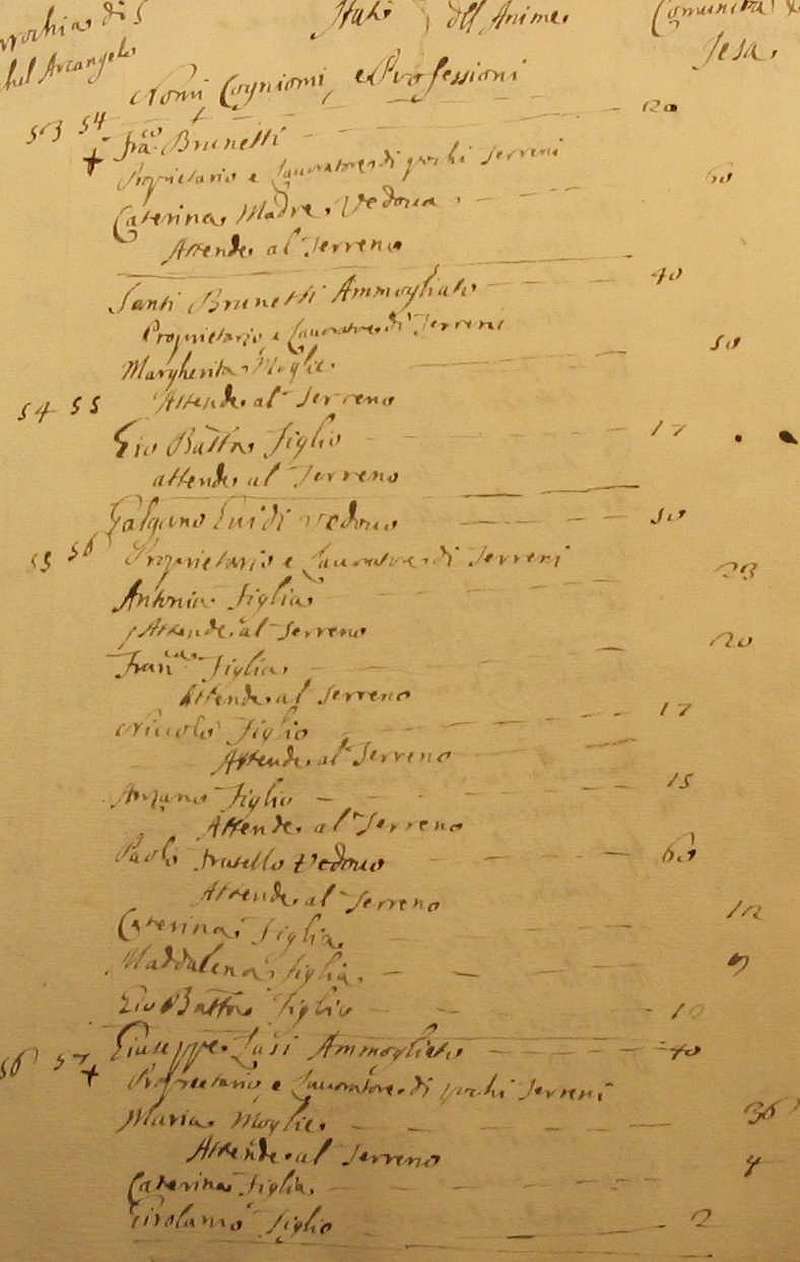 rrochia di S
Stato dell'Anime.
Comunità di
hel Arcangelo
Tesa.
Nomi, Cogniomi, e Professioni
53 54 + Fran.co Brunetti 20
Proprietario e Lauoratore di pochi Terreni
Caterina Madre Vedoua 60
Attende al Terreno
Santi Brunetti Ammogliato 40
Proprietario e Lauoratore di Terreni
Margherita Moglie. 50
54 55 Attende al Terreno
Gio Batta Figlio 17
attende al Terreno
Galgano Guidi Vedouo 50
55 56 Proprietario e Lauoratore di Terreni
Antonia Figlia 23
Attende al Terreno
Fran.ca Figlia 20
Attende al Terreno
Niccolò Figlio 17
Attende al Terreno
Anzano Figlio 15
Attende al Terreno
Paolo Fratello Vedouo 60
Attende al Terreno
Caterina Figlia 12
Maddalena Figlia. 9
Gio Batta Figlio 10
56 57 + Giuseppe Lasi Ammogliato 40
Proprietario e Lauoratore di pochi Terreni
Maria Moglie. 36
Attende al Terreno
Caterina Figlia. 4
Girolamo Figlio 2